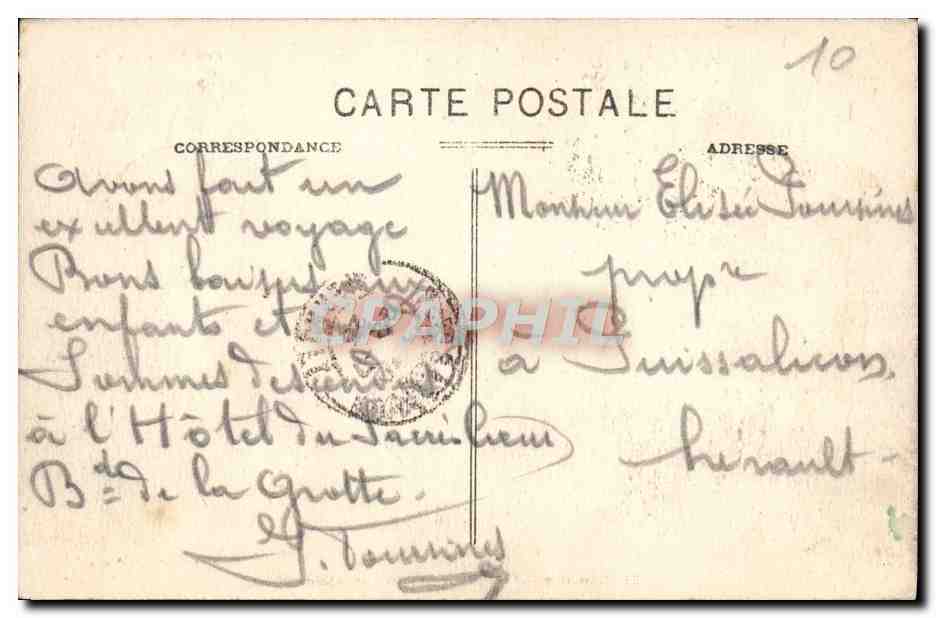 10
CARTE POSTALE
CORRESPONDANCE
ADRESSE
Avons fait un
excellent voyage
Bons baisers aux
enfants et
Sommes descendus
à l'Hôtel du Sacré-Cœur
Bd de la Grotte.
Monsieur Elisée
propre
à Puissalicon
hérault
CPAPHIL